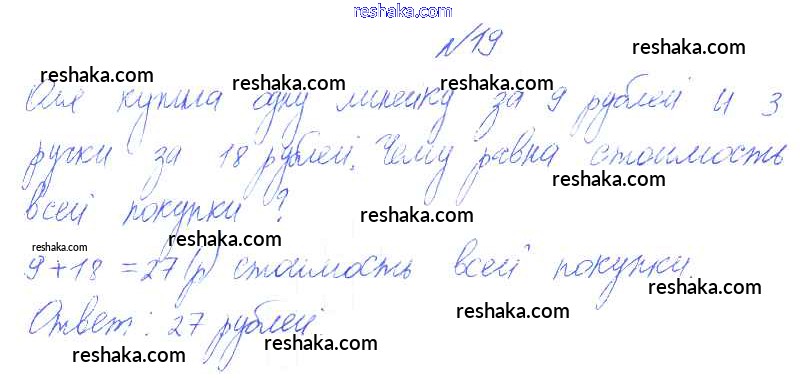 reshaka.com
№19
reshaka.com
reshaka.com reshaka.com reshaka.com
Оля купила одну линейку за 9 рублей и 3
ручки за 18 рублей. Чему равна стоимость
reshaka.com
всей покупки?
reshaka.com
reshaka.com reshaka.com
9+18=27(р) стоимость всей покупки.
reshaka.com
reshaka.com
Ответ: 27 рублей
reshaka.com
reshaka.com